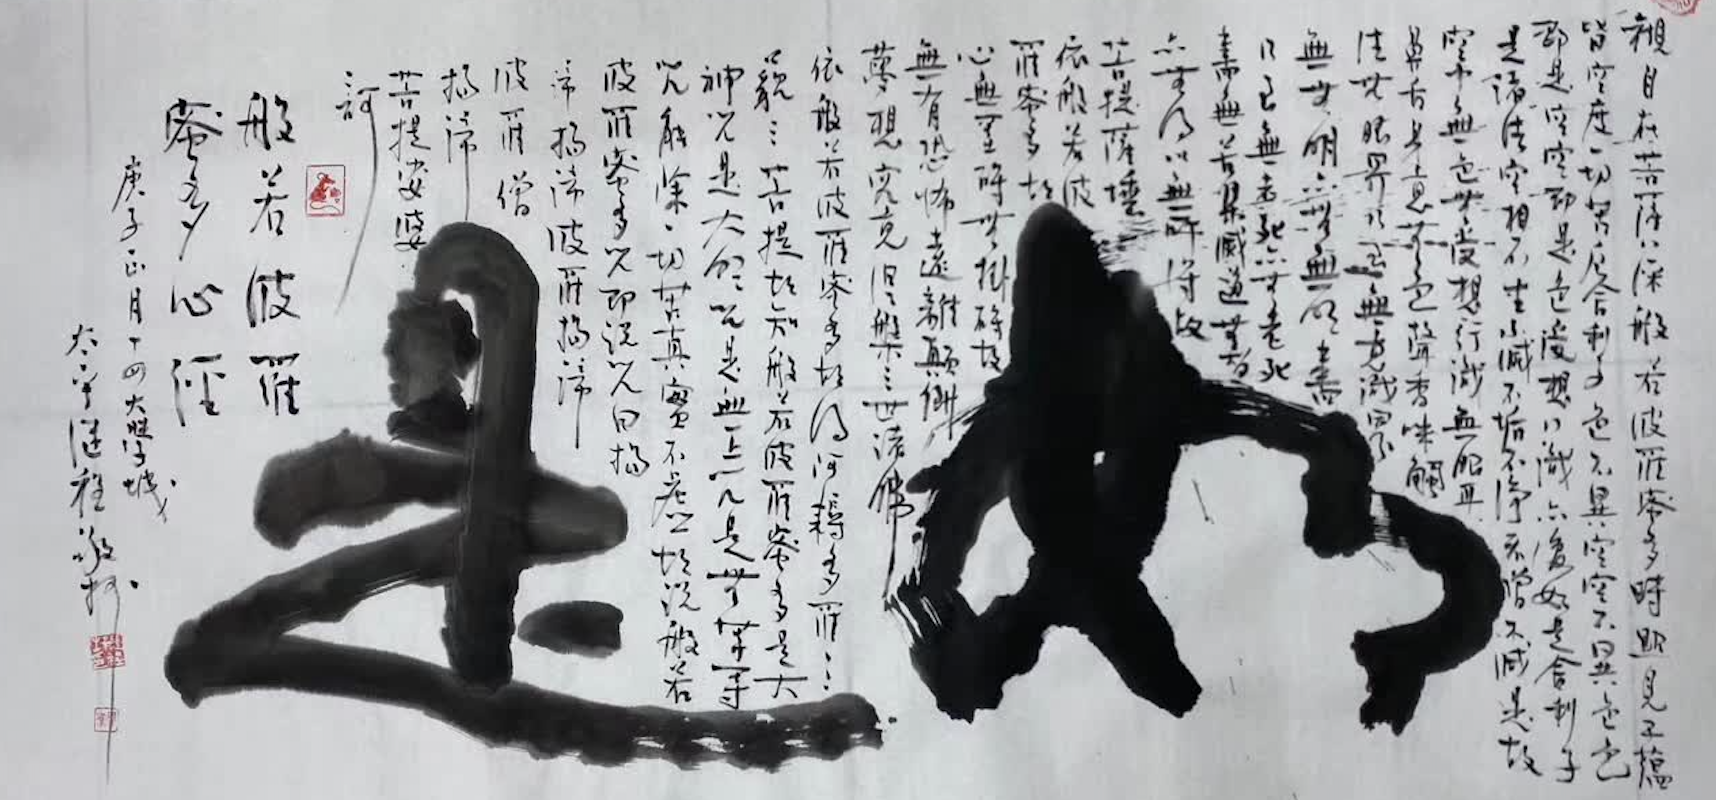 觀自在菩薩行深般若波羅蜜多時照見五蘊
皆空度一切苦厄舍利子色不異空空不異色色
即是空空即是色受想行識亦復如是舍利子
是諸法空相不生不滅不垢不淨不增不減是故
空中無色無受想行識無眼耳
鼻舌身意無色聲香味觸
法無眼界乃至無意識界
無無明亦無無明盡
乃至無老死亦無老死
盡無苦集滅道無智
亦無得以無所得故
菩提薩埵
依般若波
羅蜜多故
心無罣碍無掛碍故
無有恐怖遠離顛倒
夢想究竟涅槃三世諸佛
依般若波羅蜜多故得阿耨多羅三
藐三菩提故知般若波羅蜜多是大
神咒是大明咒是無上咒是無等等
咒能除一切苦真實不虛故說般若
波羅蜜多咒即說咒曰揭
諦揭諦波羅揭諦
波羅僧
揭諦
菩提娑婆
訶
般若波羅
蜜多心經
庚子正月十四大學城
太平继程敬抄